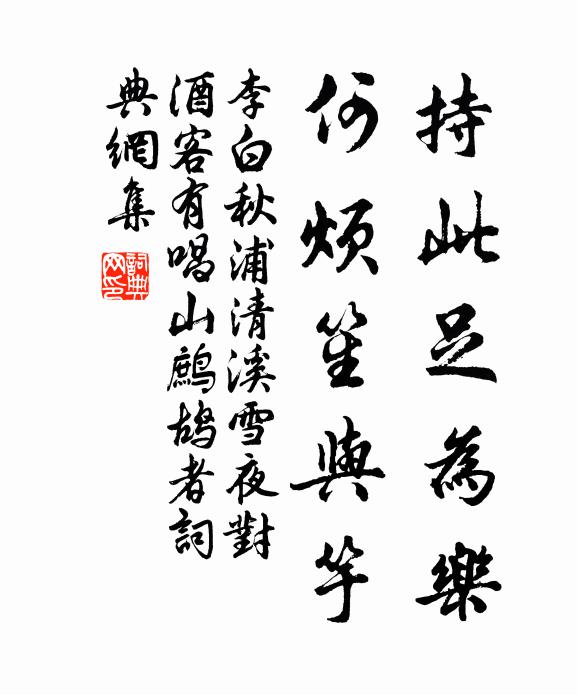 持此足為樂
何煩笙與竽
李白秋浦清溪雪夜對
酒客有唱山鷓鴣者詞
典網集
詞典網印